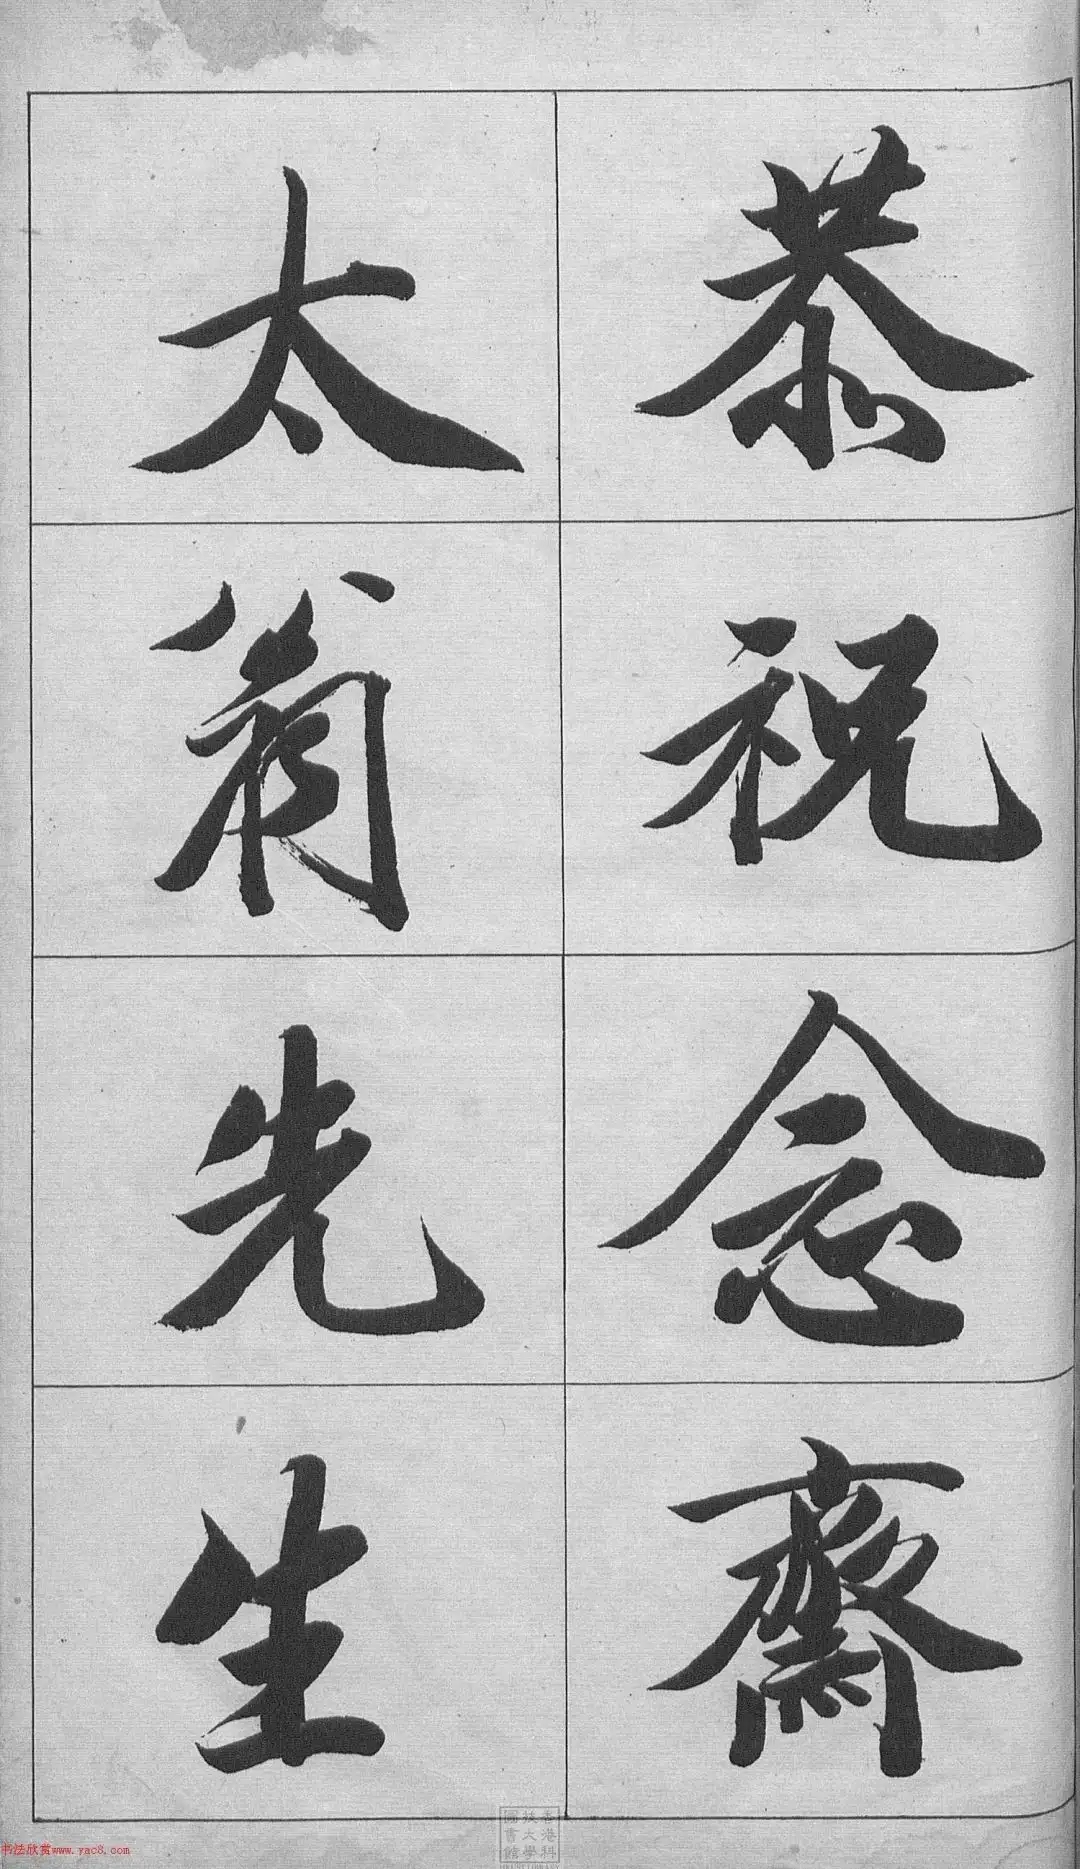 恭祝念齋
太翁先生
香港科
技大學
圖書館
HKUST LIBRARY
书法欣赏www.yac8.com